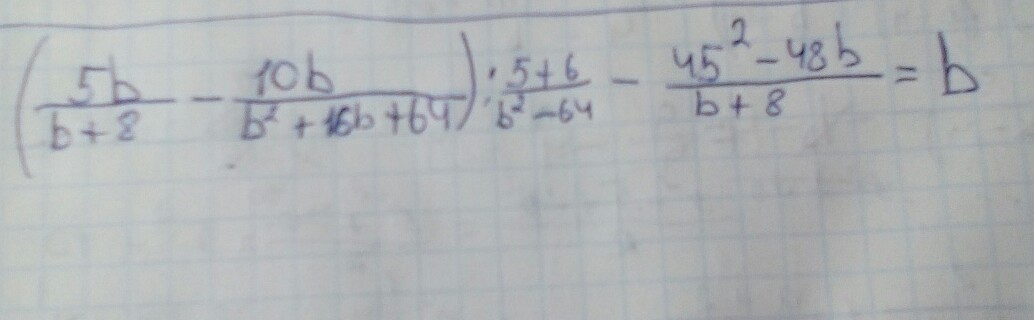 (5b/(b+8) - 10b/(b²+16b+64)) : (5+6)/(b²-64) - (45²-48b)/(b+8) = b